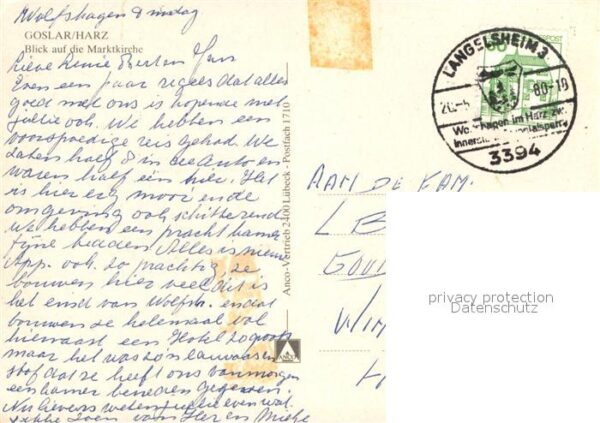 Wolfshagen Dinsdag
GOSLAR/HARZ
Blick auf die Marktkirche
Lieve
Even een paar regels dat alles
goed met ons is hopende met
jullie ook. We hebben een
voorspoedige reis gehad. We
zaten half 8 in de auto en
waren half een hier. Het
is hier erg mooi en de
omgeving ook schitterend
we hebben een pracht kamer
fijne bedden Alles is nieuw
App. ook zo prachtig, ze
bouwen hier veel dit is
het eind van Wolfsh. en dat
bouwen ze helemaal vol
hiernaast een Hotel zo groot
maar het was zo'n lawaai en
stof dat ze heeft ons vanmorgen
een kamer beneden gegeven.
Nu lievers weten jullie even wat
van Her en Miehe
Anco-Vertrieb 2400 Lübeck · Postfach 1710
ANCO
LANGELSHEIM 3
80-10
Wolfshagen im Harz
3394
AAN DE FAM.
L B
GOU
WIM
privacy protection
Datenschutz